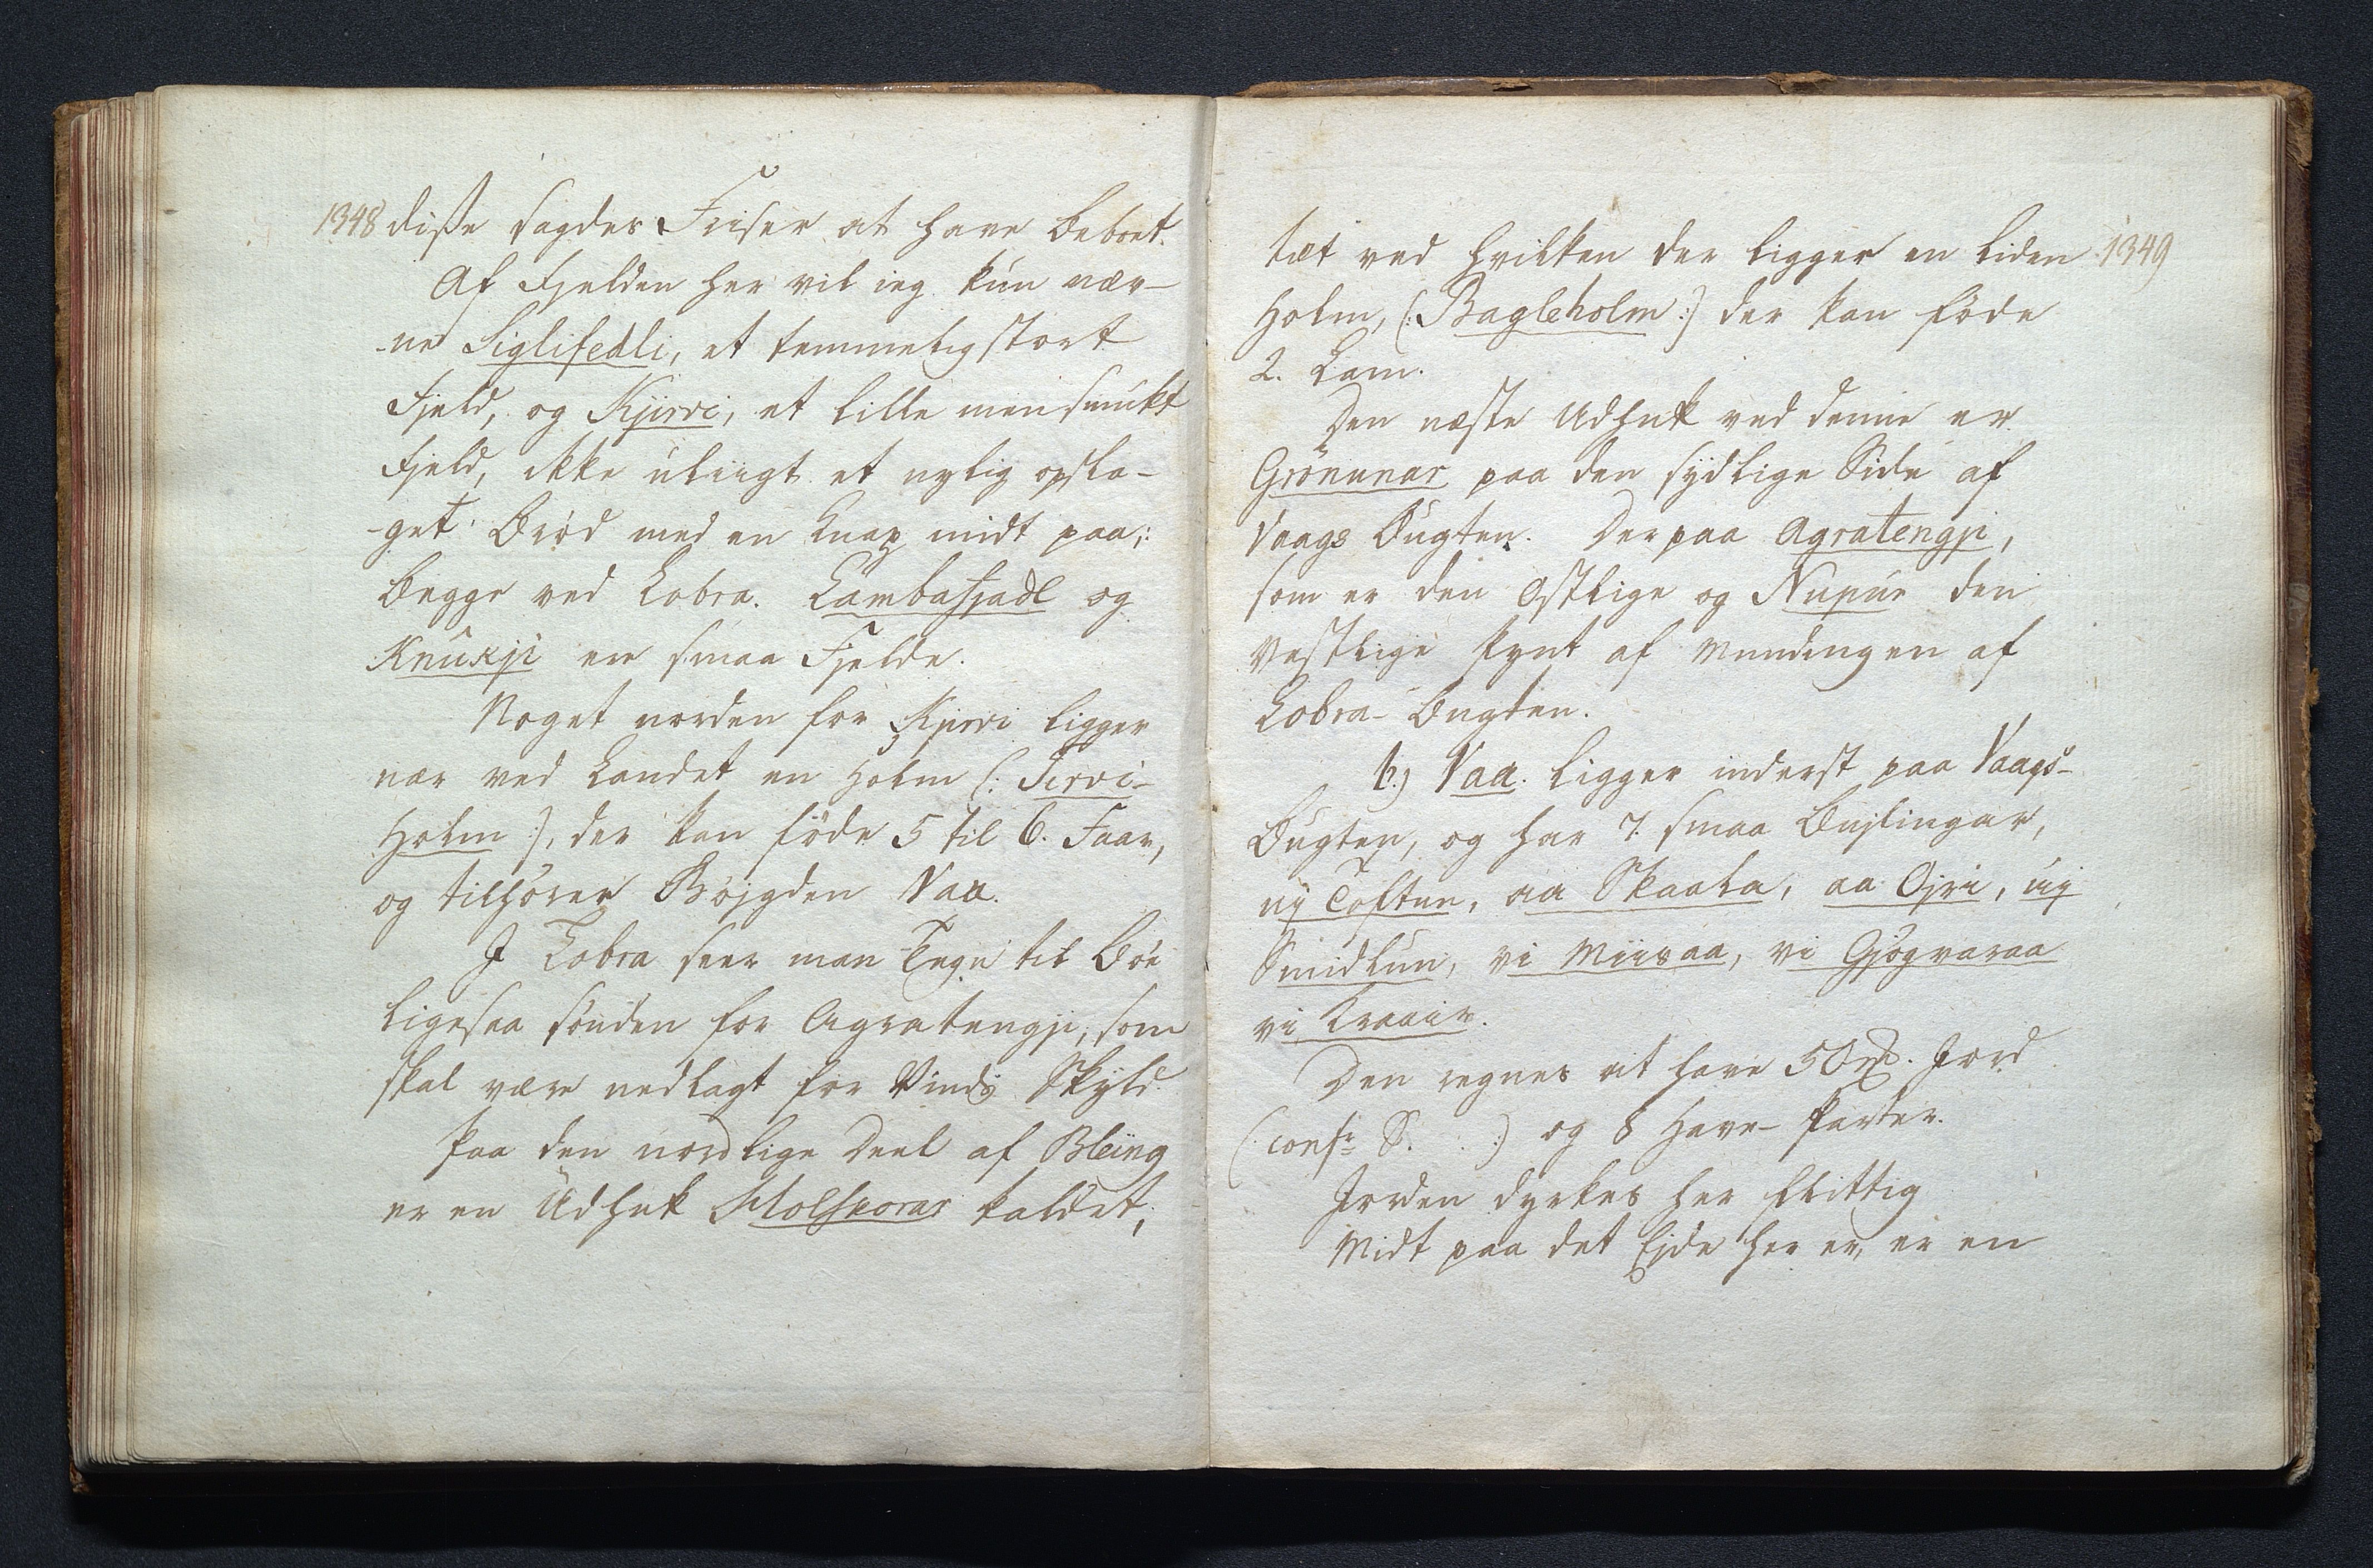 1348 disse sagdes Friser at have beboet.
Af Fjelden her vil ieg kun næv-
-ne Siglifedli, et temmelig stort
Fjeld, og Kjirvi, et lille men smukt
Fjeld, ikke uliigt et nylig opsla-
-get Brød med en Knap midt paa;
begge ved Lobra. Lambafjadl og
Knukji ere smaa Fjelde.
Noget norden for Kjirvi ligger
nær ved Landet en Holm (: Tirvi-
Holm :), der kan føde 5 til 6. Faar,
og tilhører Bøjgden Vaa.
I Lobra seer man Tegn til Bøe
ligesaa sønden for Agratengji, som
skal være nedlagt for Vinds Skyld.
Paa den nordlige Deel af Bleing
er en Udhuk kaldet;
tæt ved hvilken der ligger en liden 1349
Holm, (: Bagleholm :) der kan føde
2. Lam.
Den næste Udhuk ved denne er
Grønunar paa den sydlige Side af
Vaags Bugten. Derpaa Agratengji,
som er den Østlige og Nupur den
Vestlige Pynt af Mundingen af
Lobra-Bugten.
b.) Vaa. ligger inderst paa Vaags-
Bugten, og har 7. smaa Bujlingar,
uj Toftun, aa Skaala, aa Ojri, uj
Smidlun, vi Miisaa, vi Gjøgvaraa
vi Kraair.
Den regnes at have 50 Mk. Jord
(: confr S. :) og 8 Have-Parter.
Jorden dyrkes her flittig
Midt paa det Ejde her er, er en